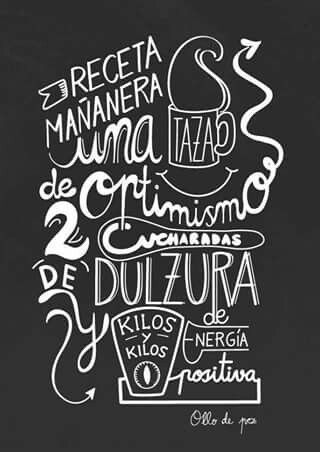 RECETA
MAÑANERA
una TAZA
de optimismo
2 CUCHARADAS
DE DULZURA
y KILOS
Y
KILOS
de
ENERGÍA
positiva
Ollo de pez